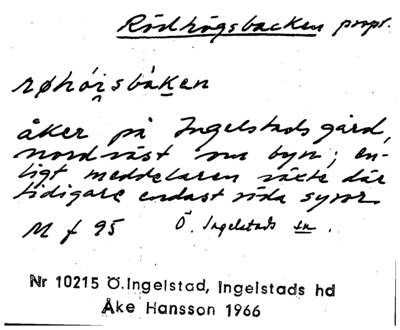 Rödhögsbacken propr.
røhói̯sbàken
åker på Ingelstads gård,
nordväst om byn; en-
ligt meddelaren växte där
tidigare endast röda syror
M f 95 Ö. Ingelstads sn.
Nr 10215 Ö.Ingelstad, Ingelstads hd
Åke Hansson 1966